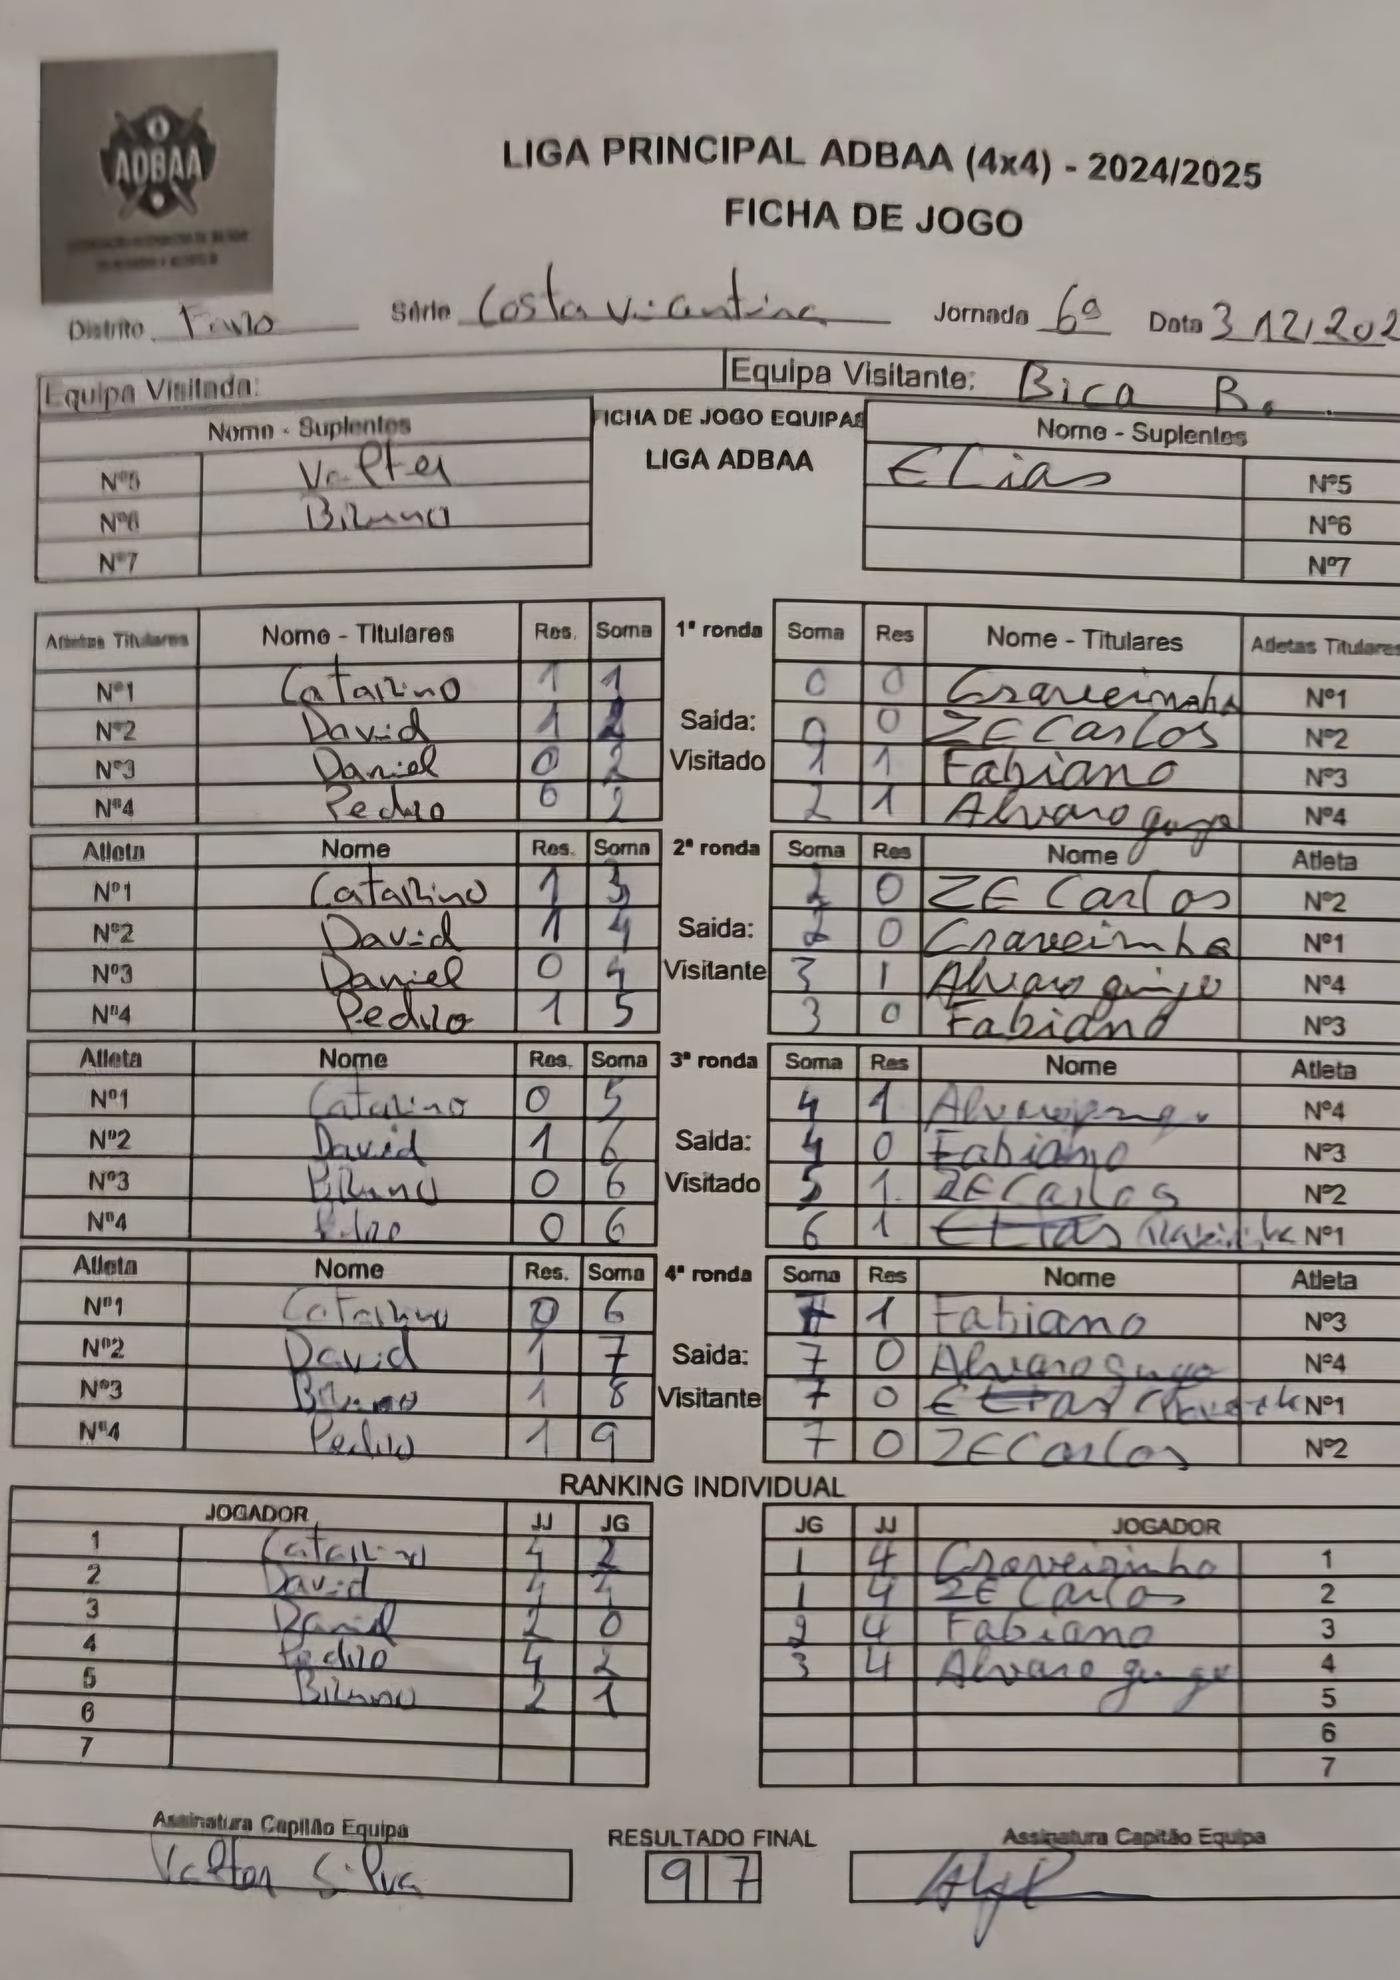 ADBAA
LIGA PRINCIPAL ADBAA (4x4) - 2024/2025
FICHA DE JOGO
Distrito Faro Série Costa Vicentina Jornada 6ª Data 3 12/202
Equipa Visitada: Equipa Visitante: Bica B.
Nome - Suplentes FICHA DE JOGO EQUIPAS Nome - Suplentes
LIGA ADBAA
Nº5 Valter Elias Nº5
Nº6 Bruno Nº6
Nº7 Nº7
Atletas Titulares Nome - Titulares Res. Soma 1ª ronda Soma Res Nome - Titulares Atletas Titulares
Nº1 Catarino 1 1 0 0 Craveirinha Nº1
Nº2 David 1 2 Saida: 0 0 ZE Carlos Nº2
Nº3 Daniel 0 2 Visitado 1 1 Fabiano Nº3
Nº4 Pedro 0 2 2 1 Alvaro gungo Nº4
Atleta Nome Res. Soma 2ª ronda Soma Res Nome Atleta
Nº1 Catarino 1 3 2 0 ZE Carlos Nº2
Nº2 David 1 4 Saida: 2 0 Craveirinha Nº1
Nº3 Daniel 0 4 Visitante 3 1 Alvaro Nº4
Nº4 Pedro 1 5 3 0 Fabiano Nº3
Atleta Nome Res. Soma 3ª ronda Soma Res Nome Atleta
Nº1 Catarino 0 5 4 1 Alvaro Nº4
Nº2 David 1 6 Saida: 4 0 Fabiano Nº3
Nº3 Bruno 0 6 Visitado 5 1 ZE Carlos Nº2
Nº4 Pedro 0 6 6 1 Elias Craveirinha Nº1
Atleta Nome Res. Soma 4ª ronda Soma Res Nome Atleta
Nº1 Catarino 0 6 7 1 Fabiano Nº3
Nº2 David 1 7 Saida: 7 0 Alvaro gungo Nº4
Nº3 Bruno 1 8 Visitante 7 0 Elias Nº1
Nº4 Pedro 1 9 7 0 ZE Carlos Nº2
RANKING INDIVIDUAL
JOGADOR JJ JG JG JJ JOGADOR
1 Catarino 4 2 1 4 Craveirinha 1
2 David 4 4 1 4 ZE Carlos 2
3 Daniel 2 0 2 4 Fabiano 3
4 Pedro 4 2 3 4 Alvaro gungo 4
5 Bruno 2 1 5
6 6
7 7
Assinatura Capitão Equipa RESULTADO FINAL Assinatura Capitão Equipa
Valter Silva 9 7